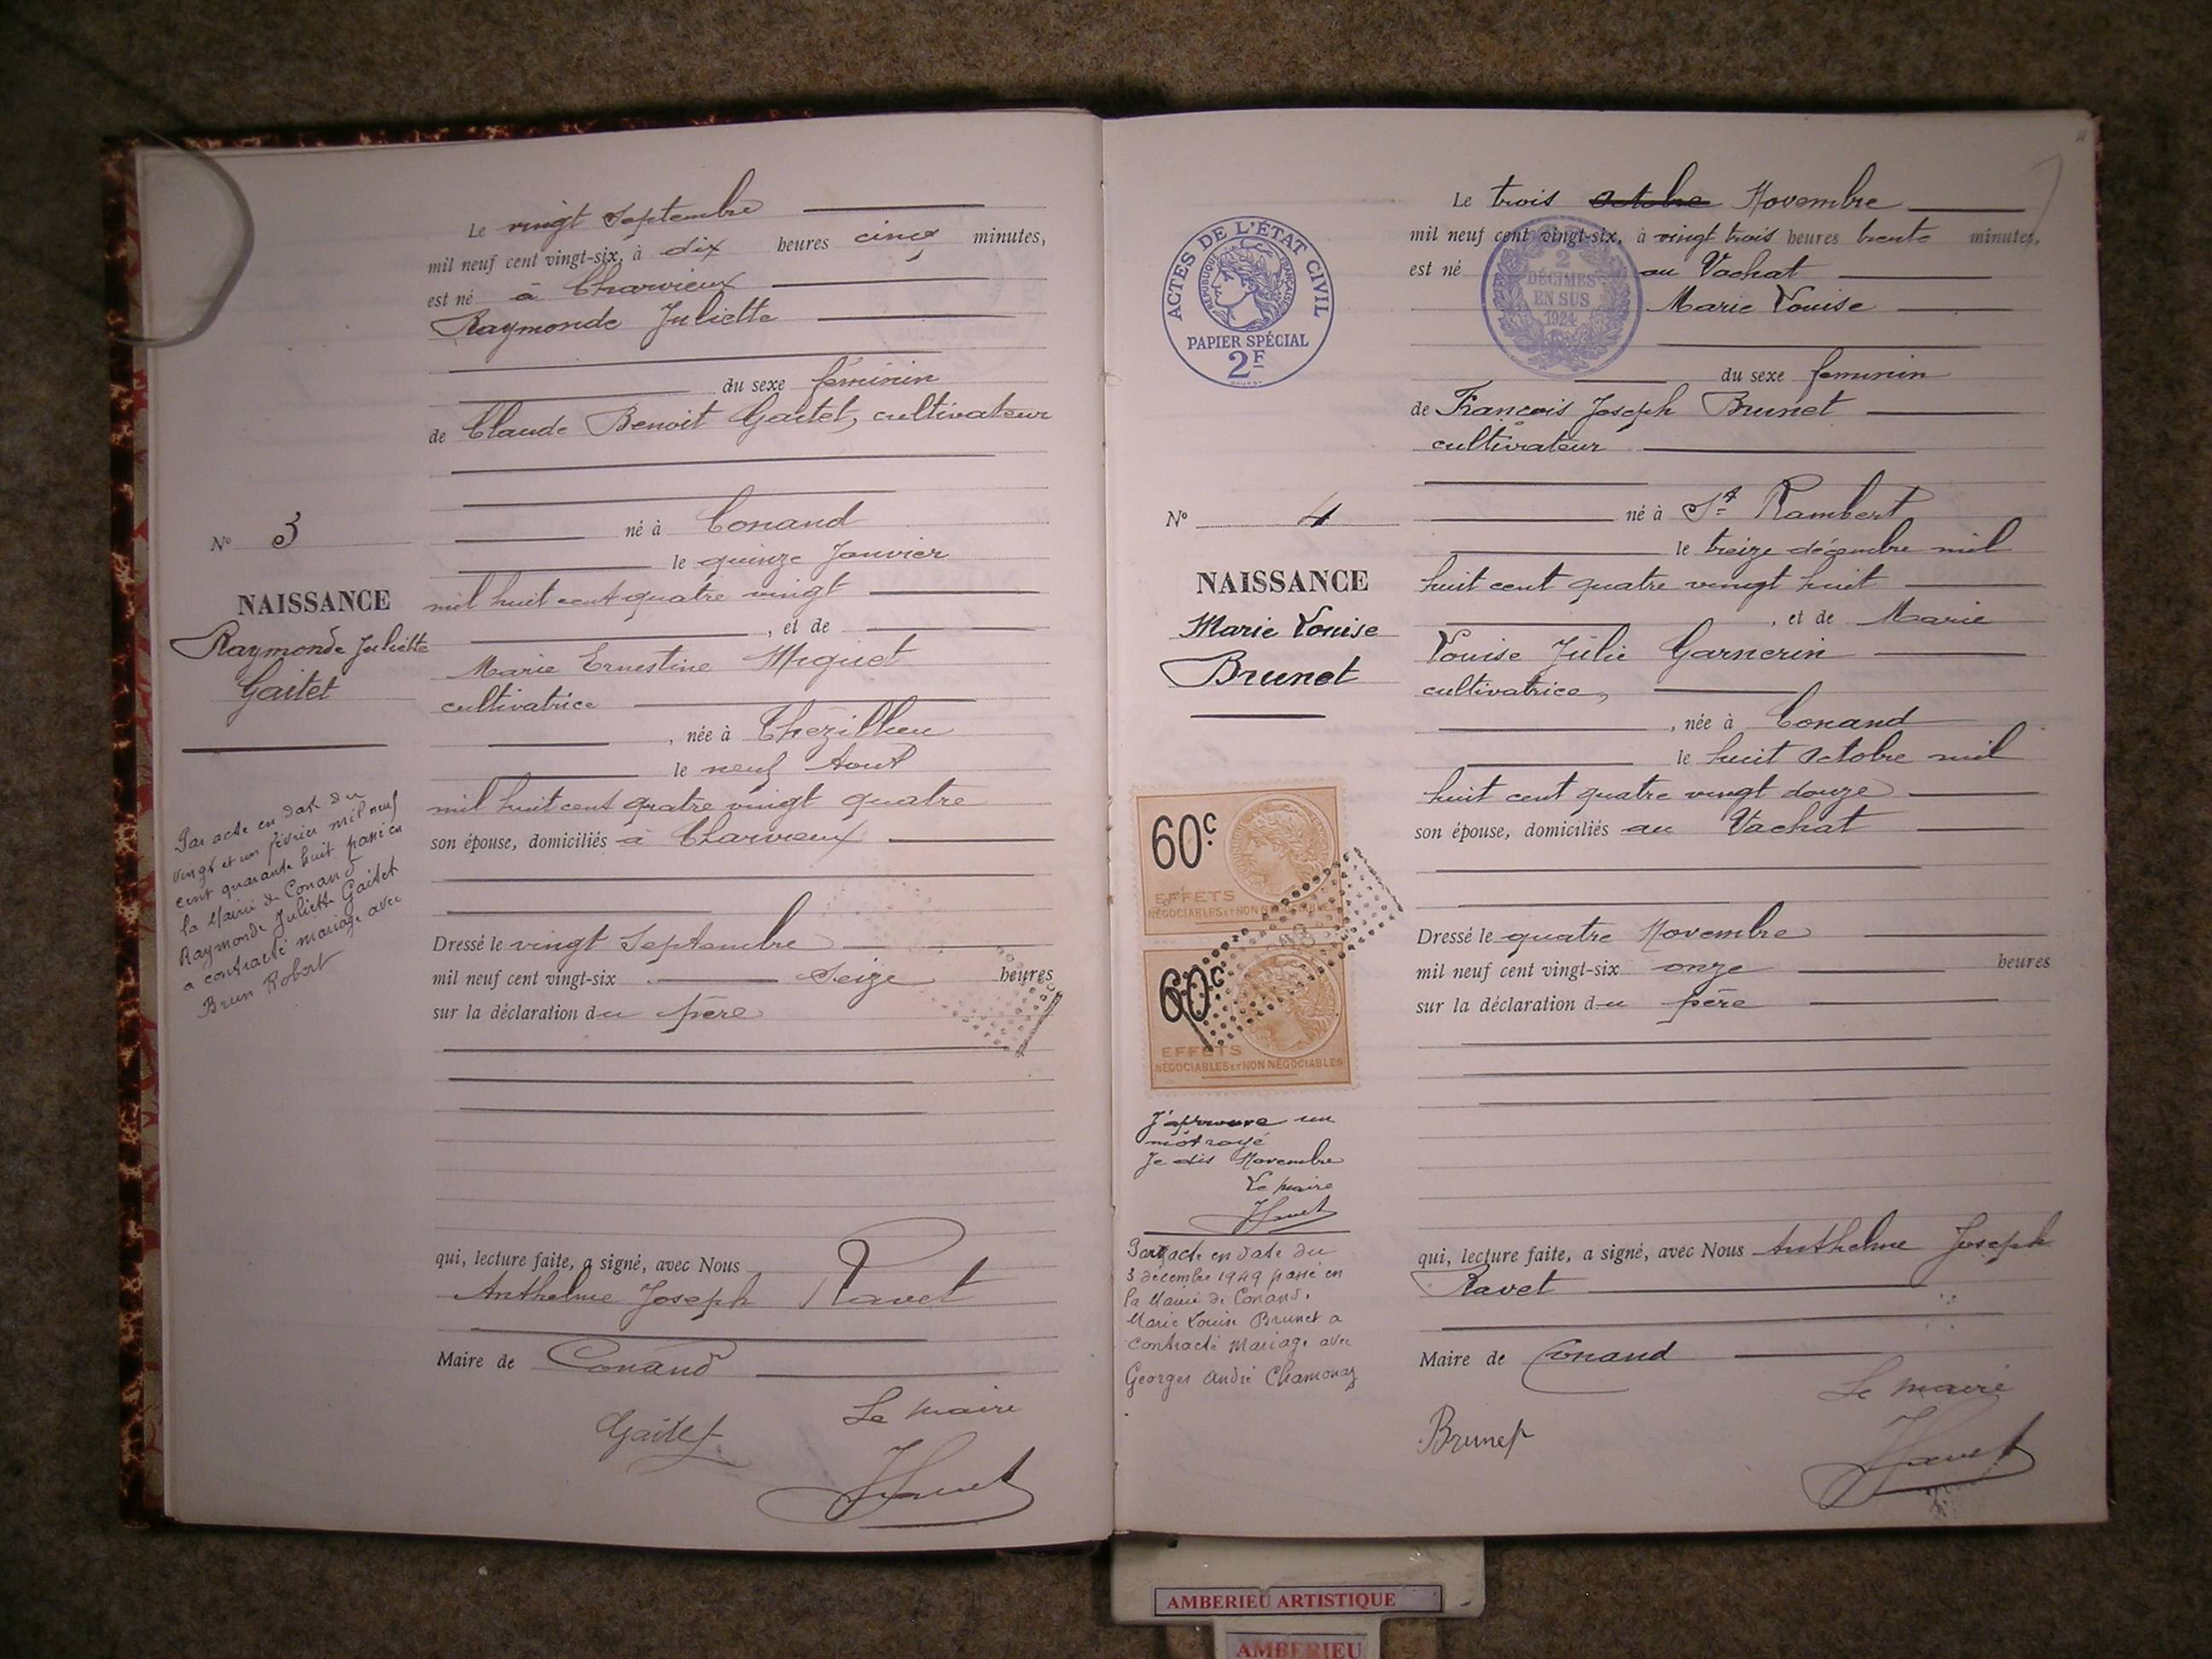 Le vingt Septembre
mil neuf cent vingt-six, à dix heures cinq minutes,
est né à Charvieux
Raymonde Juliette
du sexe féminin
de Claude Benoit Gaitet, cultivateur
né à Conand
le quinze Janvier
mil huit cent quatre vingt
, et de
Marie Ernestine Miguet
cultivatrice
, née à Thézillieu
le neuf Aout
mil huit cent quatre vingt quatre
son épouse, domiciliés à Charvieux
Dressé le vingt Septembre
mil neuf cent vingt-six Seize heures
sur la déclaration du père
qui, lecture faite, a signé, avec Nous
Anthelme Joseph Ravet
Maire de Conand
Le maire
Gaitet
N° 3
NAISSANCE
Raymonde Juliette
Gaitet
Par acte en date du
vingt et un février mil neuf
cent quarante huit passé en
la Mairie de Conand
Raymonde Juliette Gaitet
a contracté mariage avec
Brun Robert
ACTES DE L'ÉTAT CIVIL
RÉPUBLIQUE FRANÇAISE
PAPIER SPÉCIAL
2F
N° 4
NAISSANCE
Marie Louise
Brunet
60c
EFFETS
NÉGOCIABLES ET NON NÉGOCIABLES
60c
EFFETS
NÉGOCIABLES ET NON NÉGOCIABLES
J'approuve un
mot rayé
Je dis Novembre
Le maire
Par acte en date du
3 décembre 1949 passé en
la Mairie de Conand.
Marie Louise Brunet a
contracté Mariage avec
Georges André Chamonaz
Le trois octobre Novembre
mil neuf cent vingt-six, à vingt trois heures trente minutes,
est né au Vachat
2
DÉCIMES
EN SUS
1924
Marie Louise
du sexe feminin
de François Joseph Brunet
cultivateur
né à St Rambert
le treize décembre mil
huit cent quatre vingt huit
, et de Marie
Louise Julie Garnerin
cultivatrice,
, née à Conand
le huit octobre mil
huit cent quatre vingt douze
son épouse, domiciliés au Vachat
Dressé le quatre Novembre
mil neuf cent vingt-six onze heures
sur la déclaration du père
qui, lecture faite, a signé, avec Nous Anthelme Joseph
Ravet
Maire de Conand
Le maire
Brunet
AMBERIEU ARTISTIQUE
AMBERIEU